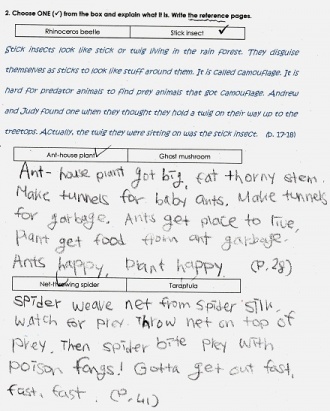 2. Choose ONE (✓) from the box and explain what it is. Write the reference pages.
Rhinoceros beetle Stick insect ✓
Stick insects look like stick or twig living in the rain forest. They disguise
themselves as sticks to look like stuff around them. It is called camouflage. It is
hard for predator animals to find prey animals that got camouflage. Andrew
and Judy found one when they thought they hold a twig on their way up to the
treetops. Actually, the twig they were sitting on was the stick insect. (p. 17-18)
Ant-house plant ✓ Ghost mushroom
Ant-house plant got big, fat thorny stem.
Make tunnels for baby ants. Make tunnels
for garbage. Ants get place to live,
Plant get food from ant garbage.
Ants happy, plant happy. (P. 28)
Net-throwing spider ✓ Tarantula
Spider weave net from spider silk.
Watch for prey. Throw net on top of
prey. Then spider bite prey with
poison fangs! Gotta get out fast,
fast, fast. (P. 41)